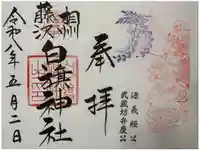 奉拝
源義経公
武蔵坊弁慶公
相州
藤沢
白旗神社
令和八年五月二日